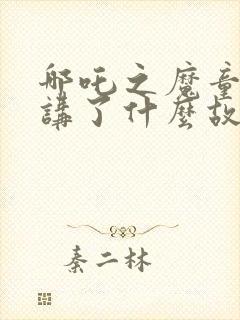 哪吒之魔童
講了什麼故
秦二林